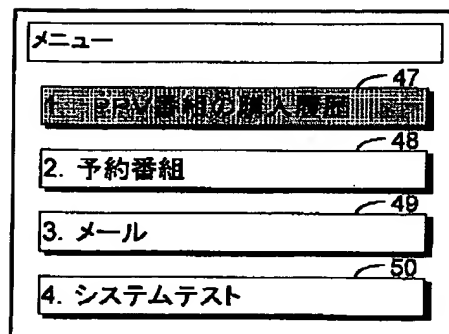 メニュー
47
1. PPV番組の購入履歴
48
2. 予約番組
49
3. メール
50
4. システムテスト